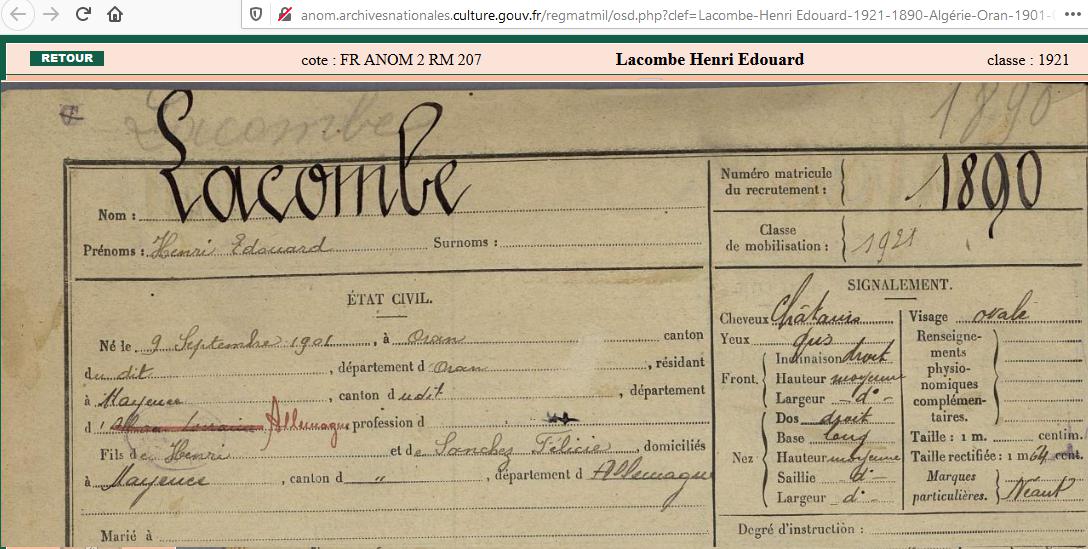 anom.archivesnationales.culture.gouv.fr/regmatmil/osd.php?clef=Lacombe-Henri Edouard-1921-1890-Algérie-Oran-1901-
RETOUR
cote : FR ANOM 2 RM 207
Lacombe Henri Edouard
classe : 1921
Lacombe
1890
Nom : Lacombe
Prénoms : Henri Edouard Surnoms :
ÉTAT CIVIL.
Né le 9 Septembre 1901, à Oran canton
du dit, département d Oran, résidant
à Mayence, canton d udit, département
d Alsace Lorraine Allemagne, profession d
Fils de Henri et de Sanchez Félicie, domiciliés
à Mayence, canton d „, département d Allemagne
Marié à
Numéro matricule
du recrutement : 1890
Classe
de mobilisation : 1921
SIGNALEMENT.
Cheveux Châtains
Yeux gris
Front. Inclinaison droit
Hauteur moyenne
Largeur d° -
Nez : Dos droit
Base long
Hauteur moyenne
Saillie d° -
Largeur d° -
Visage ovale
Renseigne-
ments
physio-
nomiques
complémen-
taires.
Taille : 1 m. centim.
Taille rectifiée : 1 m 64 cent.
Marques
particulières. Néant
Degré d'instruction :